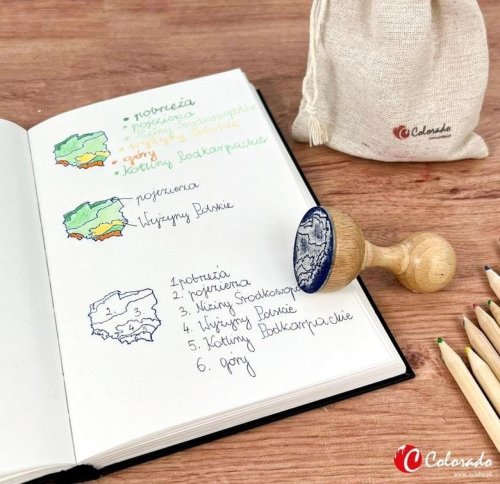 • pobrzeża
• pojezierza
• Niziny Środkowopolskie
• Wyżyny Polskie
• góry
• Kotliny Podkarpackie
pojezierza
Wyżyny Polskie
1. pobrzeża
2. pojezierza
3. Niziny Środkowopo
4. Wyżyny Polskie
5. Kotliny Podkarpackie
6. góry
2
3
4
Colorado
Colorado